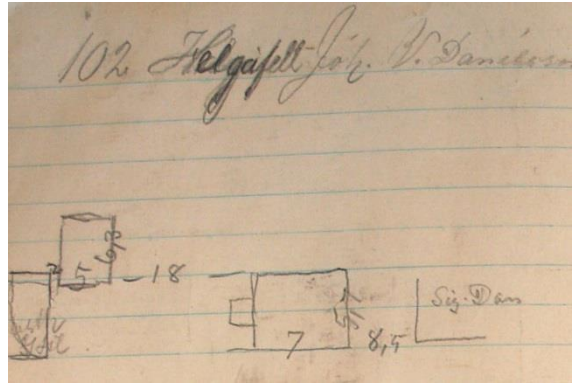 102 Helgafell Jóh. V. Daníelsson
6,3
5
18
5,7
Sig. Dan
7
8,5